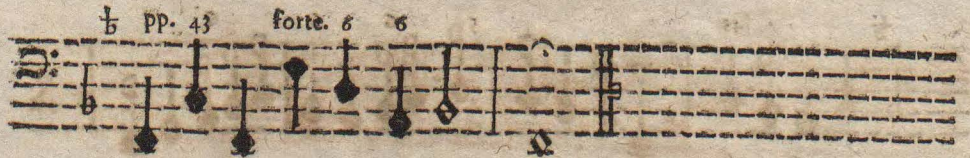 ♭ pp. 43 forte. 6 6